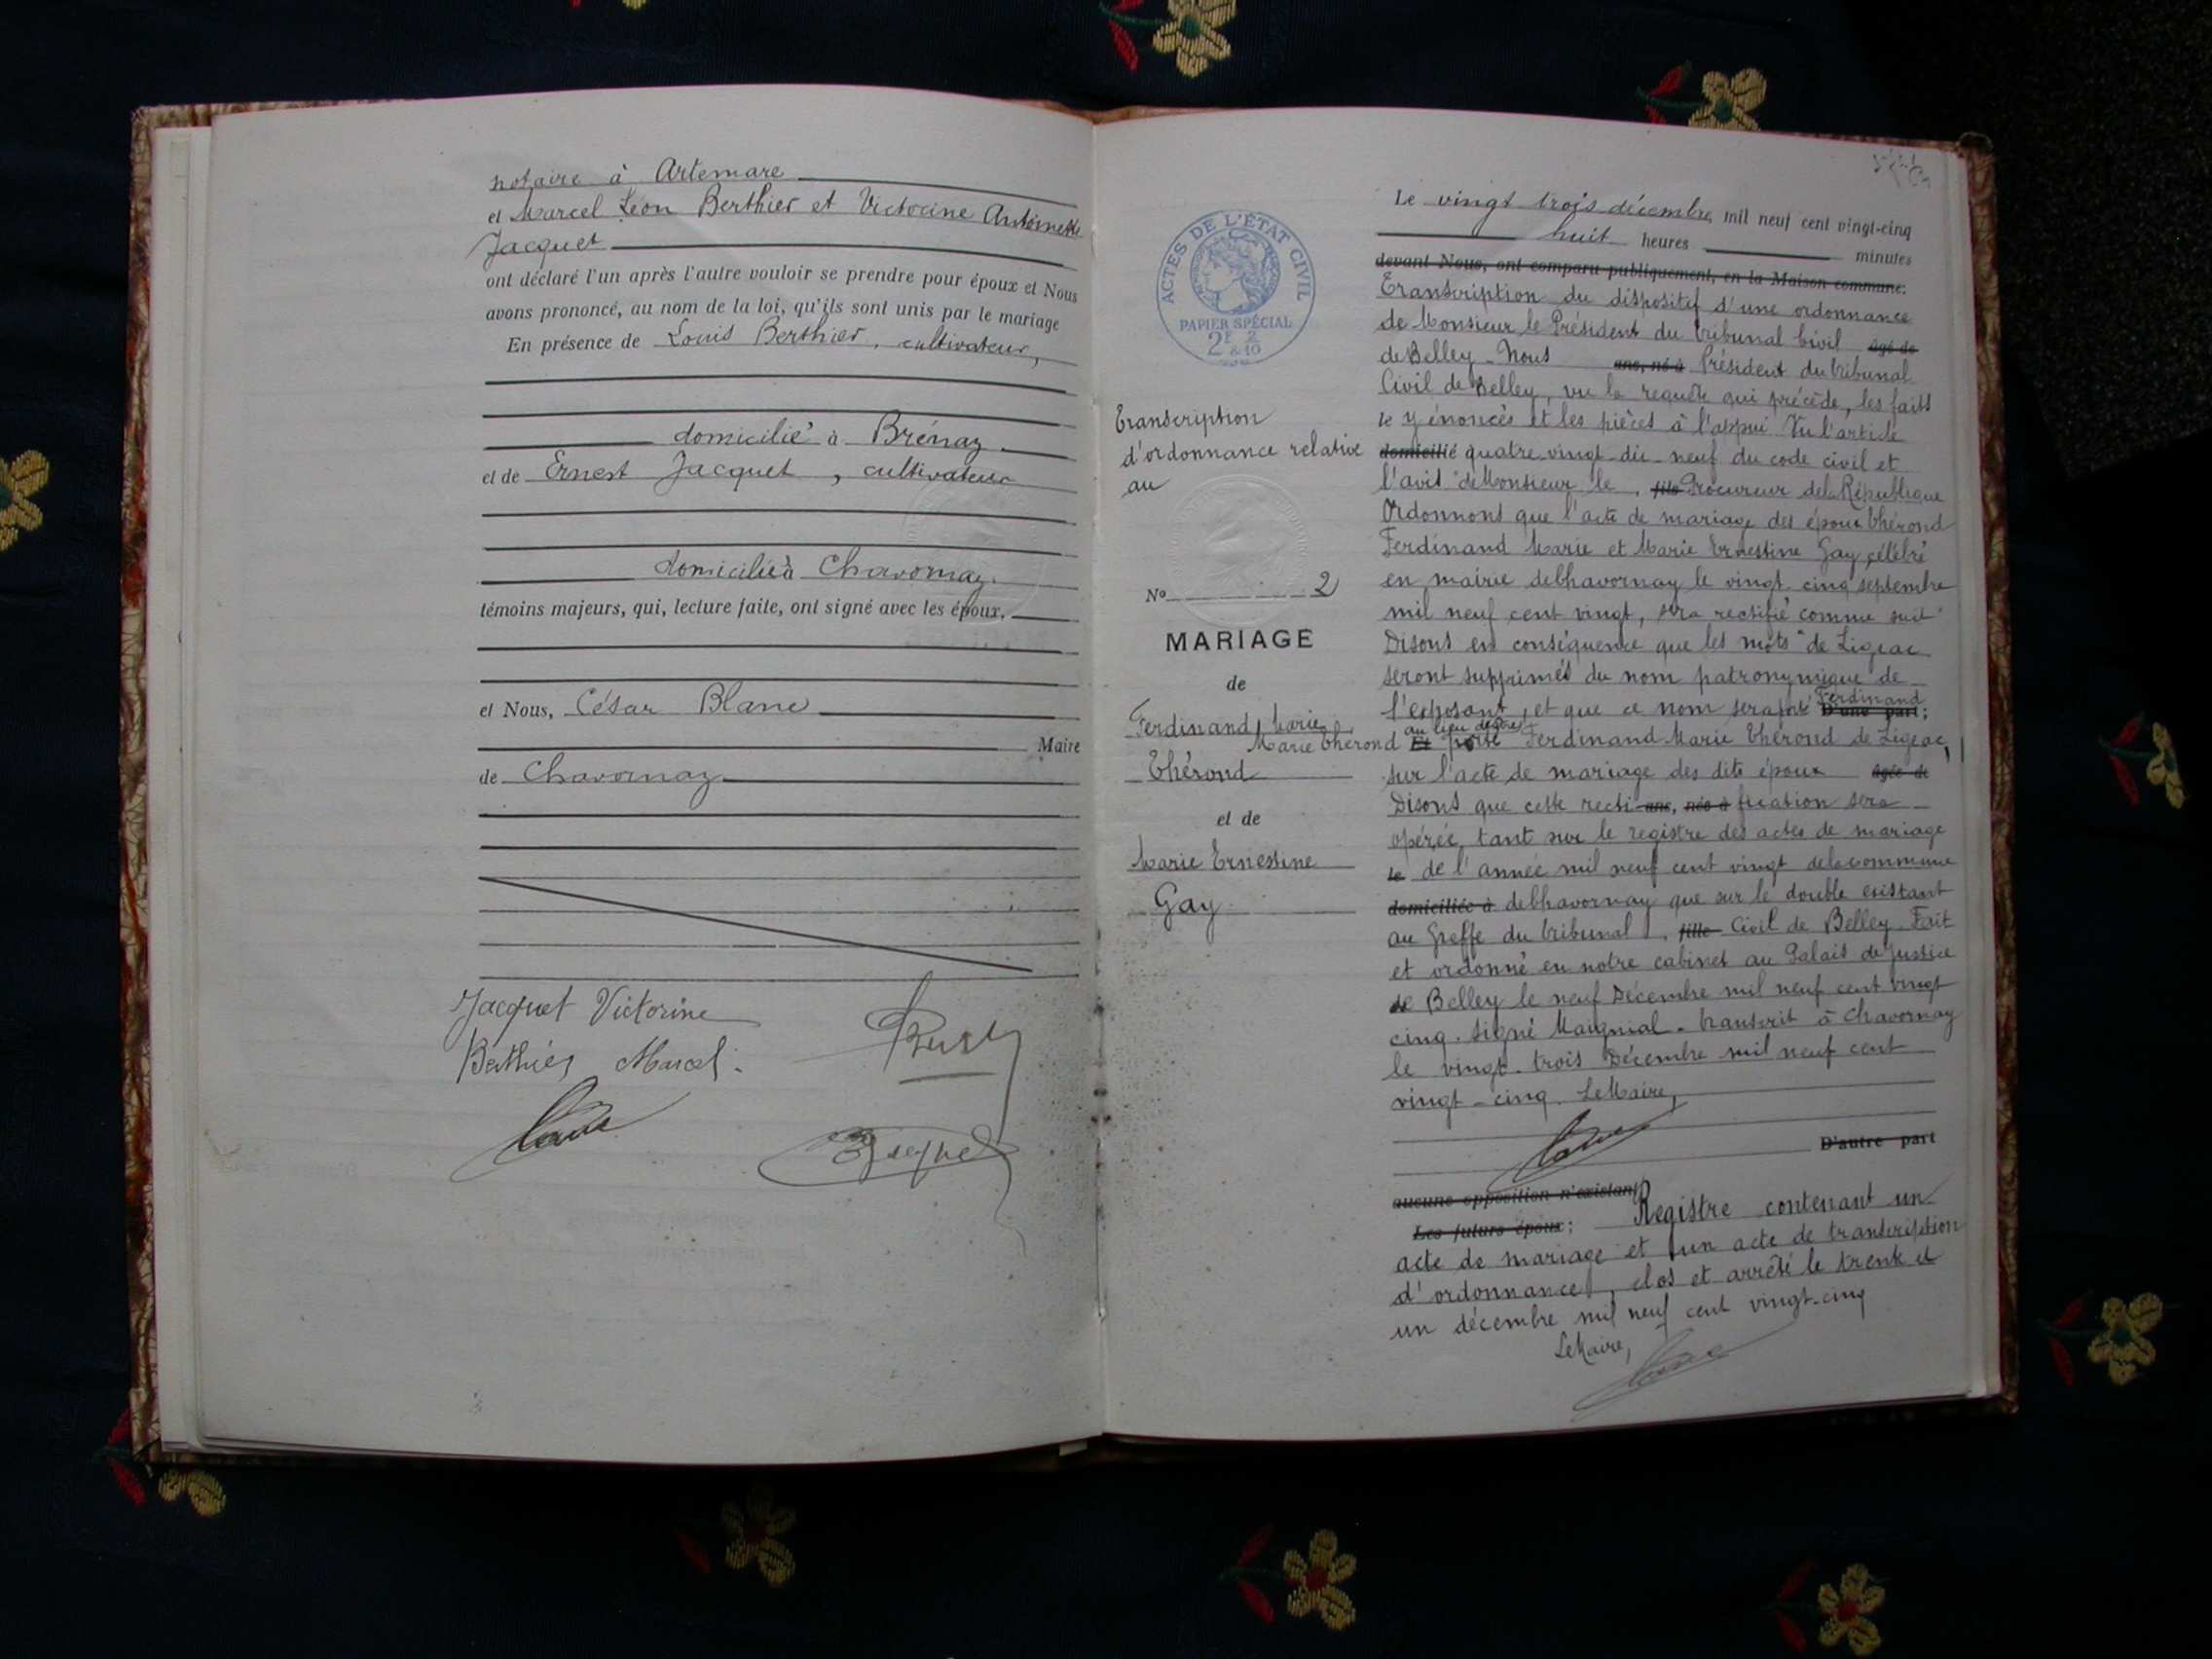 notaire à Artemare
et Marcel Léon Berthier et Victorine Antoinette
Jacquet
ont déclaré l'un après l'autre vouloir se prendre pour époux et Nous
avons prononcé, au nom de la loi, qu'ils sont unis par le mariage
En présence de Louis Berthier, cultivateur,
domicilié à Brénaz
et de Ernest Jacquet, cultivateur
domicilié à Chavornay.
témoins majeurs, qui, lecture faite, ont signé avec les époux.
et Nous, César Blanc
Maire
de Chavornay
Jacquet Victorine
Berthier Marcel.
ACTES DE L'ÉTAT CIVIL
PAPIER SPÉCIAL
2F 2
&10
Transcription
d'ordonnance relative
au
No 2
MARIAGE
de
Ferdinand Marie
Thérond
et de
Marie Ernestine
Gay
Le vingt trois décembre mil neuf cent vingt-cinq
huit heures minutes
devant Nous, ont comparu publiquement, en la Maison commune:
Transcription du dispositif d'une ordonnance
de Monsieur le Président du tribunal Civil âgé de
de Belley - Nous ans, né à Président du tribunal
Civil de Belley, vu la requête qui précède, les faits
le y énoncés et les pièces à l'appui Vu l'article
domicilié quatre-vingt-dix-neuf du code civil et
l'avis de Monsieur le, fils Procureur de la République
Ordonnons que l'acte de mariage des époux Thérond
Ferdinand Marie et Marie Ernestine Gay célébré
en mairie de Chavornay le vingt cinq septembre
mil neuf cent vingt, sera rectifié comme suit
Disons en conséquence que les mots "de Ligeac
seront supprimés du nom patronymique de
l'exposant, et que ce nom sera D'une part; Ferdinand
Marie Thérond Et au lieu de porté Ferdinand Marie Thérond de Ligeac,
sur l'acte de mariage des dits époux âgée de
Disons que cette recti ans, née à fication sera
opérée, tant sur le registre des actes de mariage
le de l'année mil neuf cent vingt de la commune
domiciliée à de Chavornay que sur le double existant
au Greffe du tribunal, fille Civil de Belley. Fait
et ordonné en notre cabinet au Palais de Justice
de Belley le neuf Décembre mil neuf cent vingt
cinq. Signé Maignial. transcrit à Chavornay
le vingt-trois Décembre mil neuf cent
vingt-cinq. Le Maire,
D'autre part
aucune opposition n'existant
Les futurs époux; Registre contenant un
acte de mariage et un acte de transcription
d'ordonnance, clos et arrêté le trente et
un décembre mil neuf cent vingt-cinq
Le Maire,